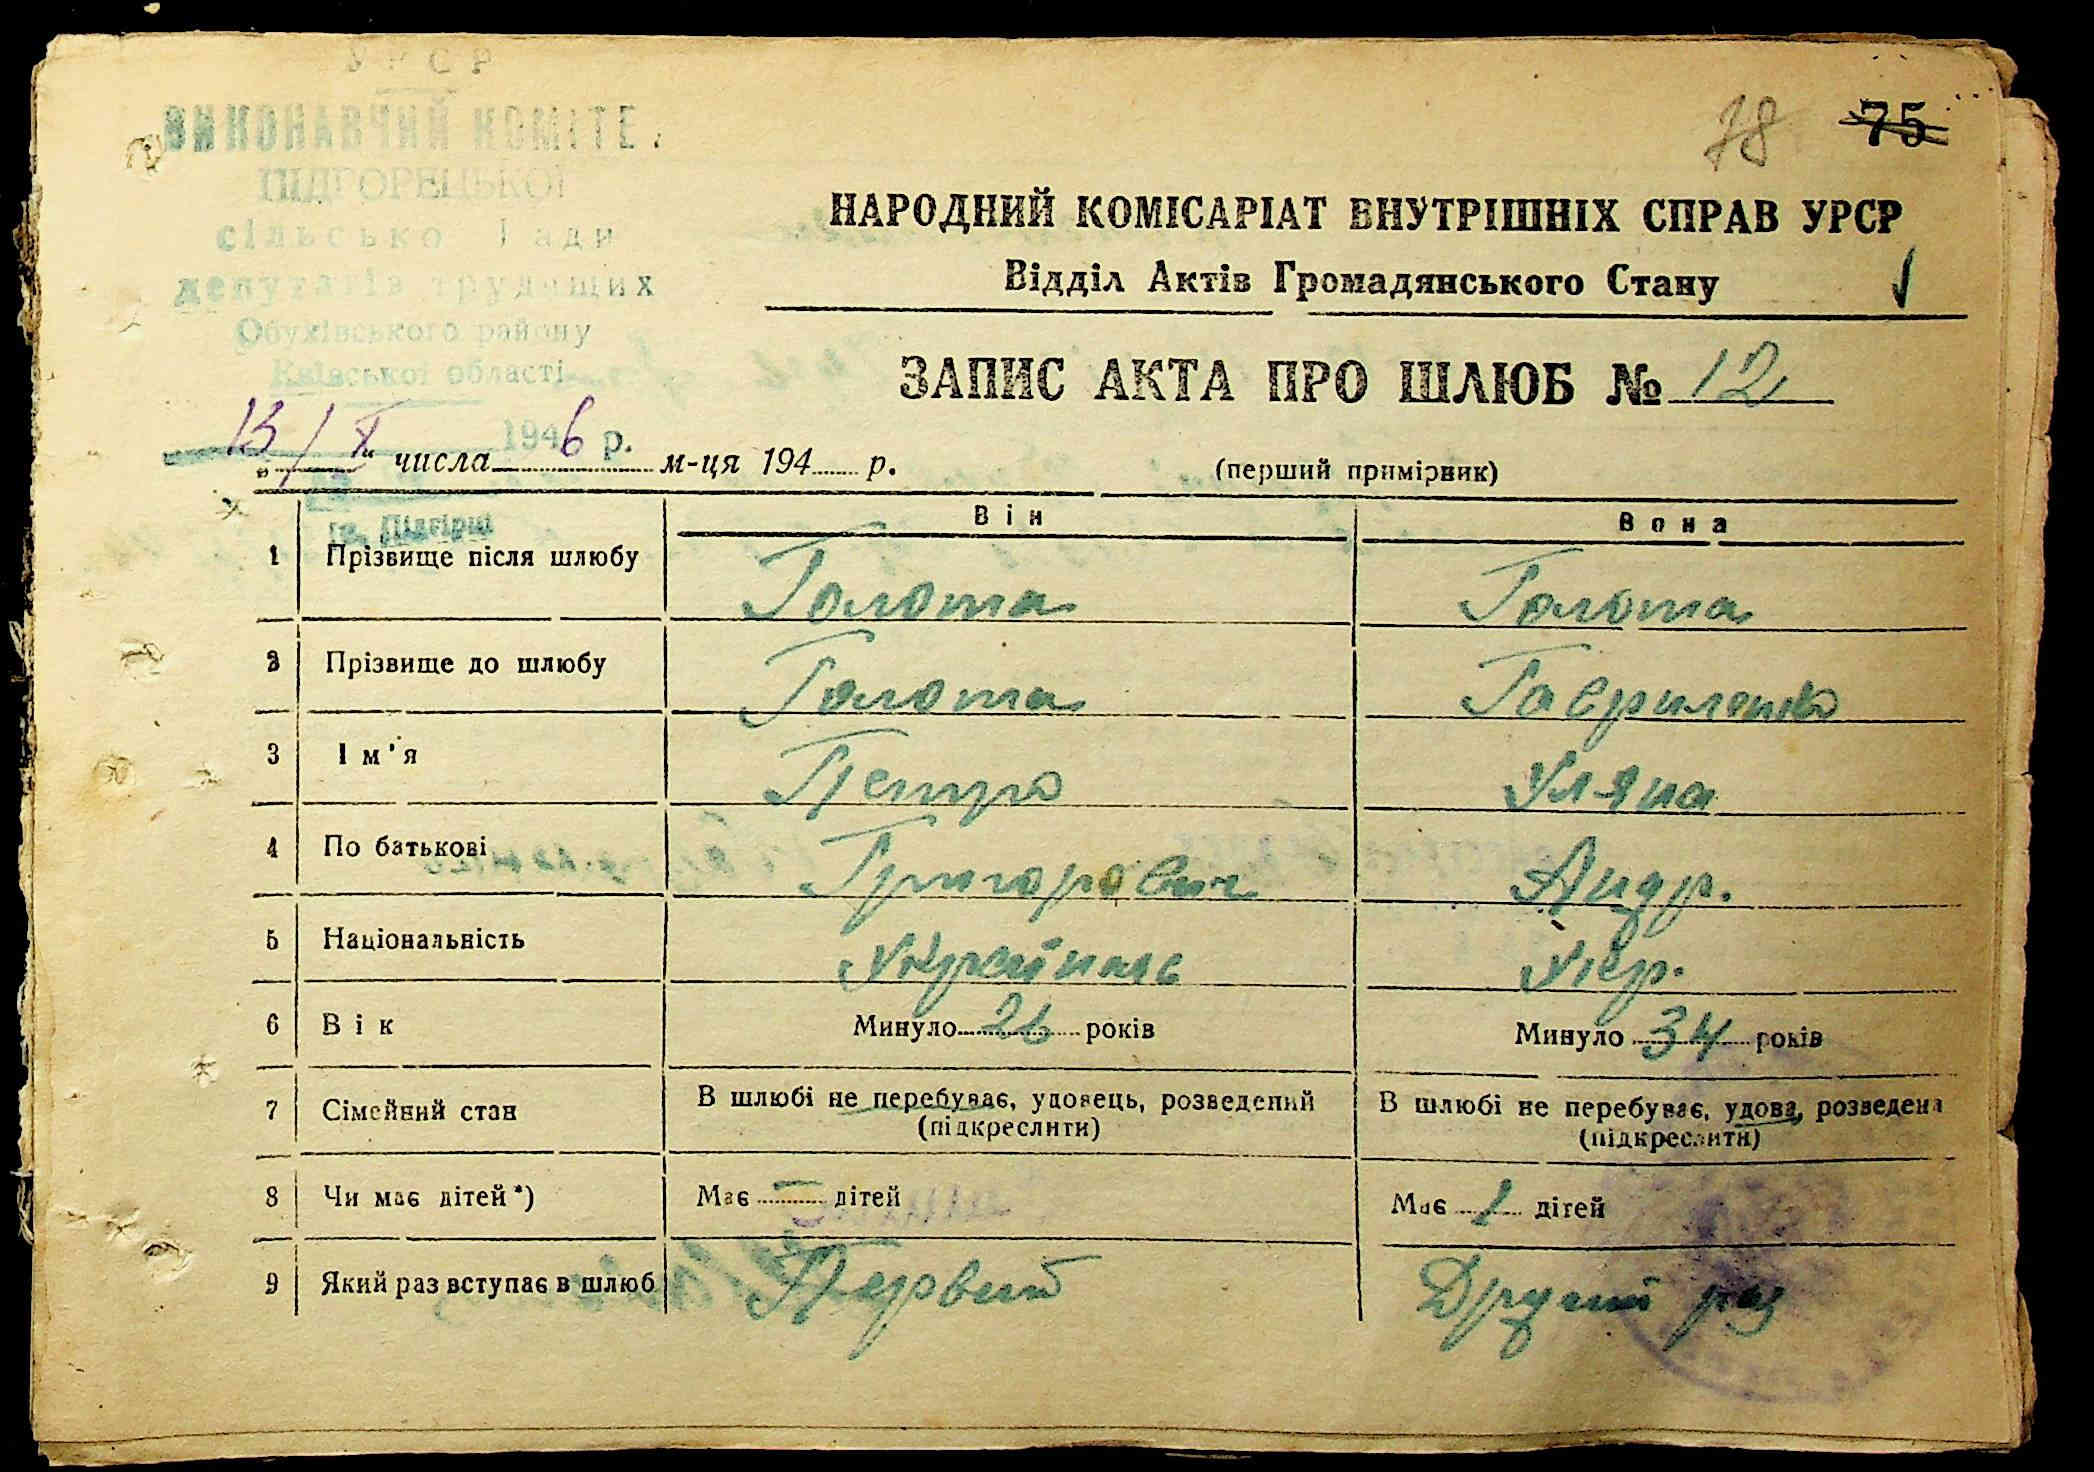 УРСР
ВИКОНАВЧИЙ КОМІТЕ
ПІДГОРЕЦЬКОЇ
сільсько Ради
депутатів трудящих
Обухівського району
Київської області
78 75
НАРОДНИЙ КОМІСАРІАТ ВНУТРІШНІХ СПРАВ УРСР
Відділ Актів Громадянського Стану
ЗАПИС АКТА ПРО ШЛЮБ № 12
13/X 1946 р.
„ “ числа м-ця 194 р.
(перший примірник)
с. Підгірці
Він Вона
1 Прізвище після шлюбу Голота Голота
2 Прізвище до шлюбу Голота Гавриленко
3 Ім'я Петро Уляна
4 По батькові Григорович Андр.
5 Національність Українець Укр.
6 Вік Минуло 26 років Минуло 34 років
7 Сімейний стан В шлюбі не перебуває, удовець, розведений В шлюбі не перебуває, удова, розведена
(підкреслити) (підкреслити)
8 Чи має дітей*) Має — дітей Має 1 дітей
9 Який раз вступає в шлюб Первий Другий раз